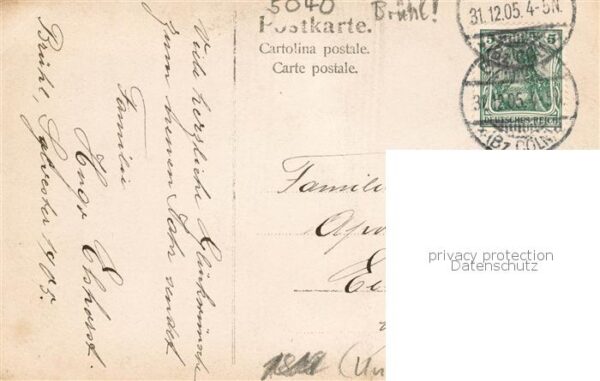 5040
Brühl!
Postkarte.
Cartolina postale.
Carte postale.
31.12.05. 4-5N.
5 5
DEUTSCHES REICH
(Bz. CÖLN)
Viele herzliche Glückwünsche
zum neuen Jahr sendet
Familie
Hugo
Brühl, Sylvester 1905.
Famili
Apo
privacy protection
Datenschutz
(Un